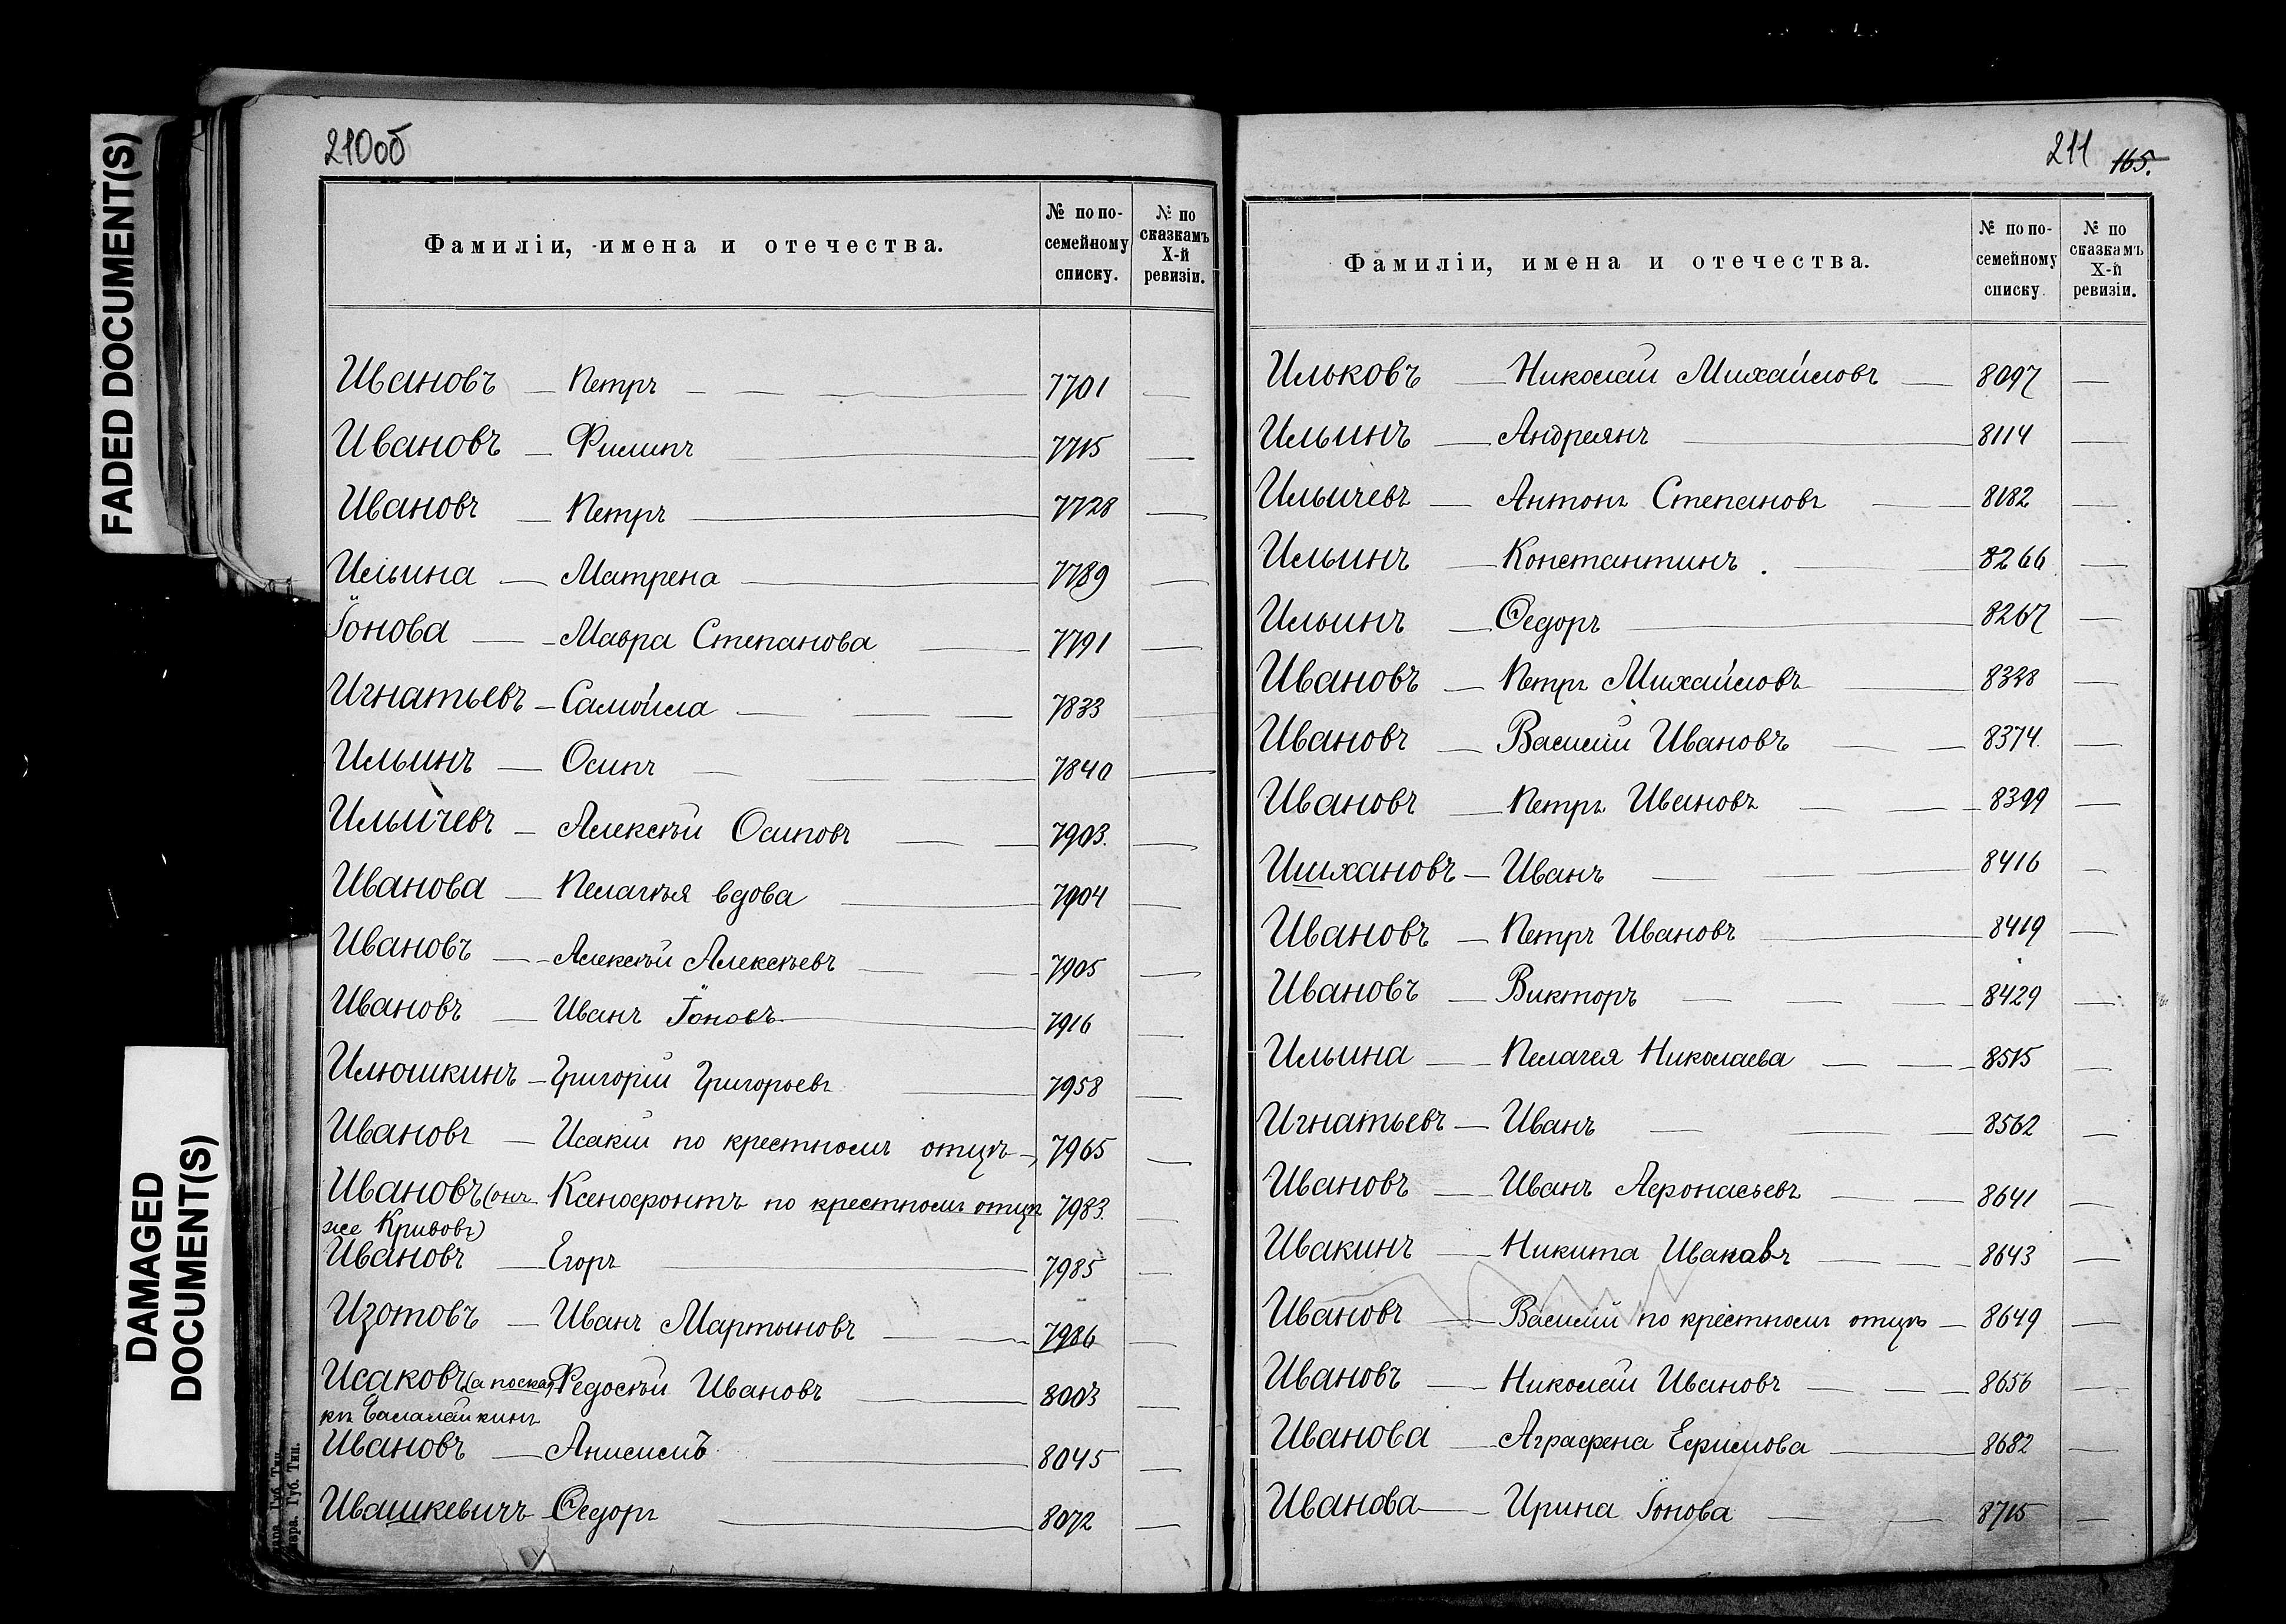 FADED DOCUMENT(S)
DAMAGED
DOCUMENT(S)
210об
Фамиліи, имена и отечества.
№ по по-
семейному
списку.
№ по
сказкамъ
X-й
ревизіи.
Ивановъ — Петръ — 7701 —
Ивановъ — Филипъ — 7715 —
Ивановъ — Петръ — 7728 —
Ильина — Матрена — 7789 —
Іонова — Мавра Степанова — 7791 —
Игнатьевъ — Самойла — 7833 —
Ильинъ — Осипъ — 7840 —
Ильичевъ — Алексѣй Осиповъ — 7903. —
Иванова — Пелагѣя вдова — 7904 —
Ивановъ — Алексѣй Алексѣевъ — 7905 —
Ивановъ — Иванъ Іоновъ — 7916 —
Илюшкинъ — Григорій Григорьевъ — 7958 —
Ивановъ — Исакій по крестномъ отцѣ — 7965 —
Ивановъ (онъ Ксенофонтъ по крестномъ отцѣ 7983. —
же Кривовъ)
Ивановъ — Егоръ — 7985 —
Изотовъ — Иванъ Мартыновъ — 7986 —
Исаковъ (а поска Федосѣй Ивановъ — 8003 —
кѣ Баламайкинъ
Ивановъ — Анисимъ — 8045 —
Ивашкевичъ — Ѳедоръ — 8072 —
Губ. Тип.
Губ. Тип.
211 165.
Фамиліи, имена и отечества.
№ по по-
семейному
списку.
№ по
сказкамъ
X-й
ревизіи.
Ильковъ — Николай Михайловъ — 8097 —
Ильинъ — Андреянъ — 8114 —
Ильичевъ — Антонъ Степановъ — 8182 —
Ильинъ — Константинъ. — 8266 —
Ильинъ — Ѳедоръ — 8267 —
Ивановъ — Петръ Михайловъ — 8328 —
Ивановъ — Василій Ивановъ — 8374. —
Ивановъ — Петръ Ивановъ — 8399 —
Ишхановъ — Иванъ — 8416 —
Ивановъ — Петръ Ивановъ — 8419 —
Ивановъ — Викторъ — 8429 —
Ильина — Пелагея Николаева — 8515 —
Игнатьевъ — Иванъ — 8562 —
Ивановъ — Иванъ Афонасьевъ — 8641 —
Ивакинъ — Никита Ивановъ — 8643 —
Ивановъ — Василій по крестномъ отцѣ — 8649 —
Ивановъ — Николай Ивановъ — 8656 —
Иванова — Аграфена Ефимова — 8682 —
Иванова — Ирина Іонова — 8715 —